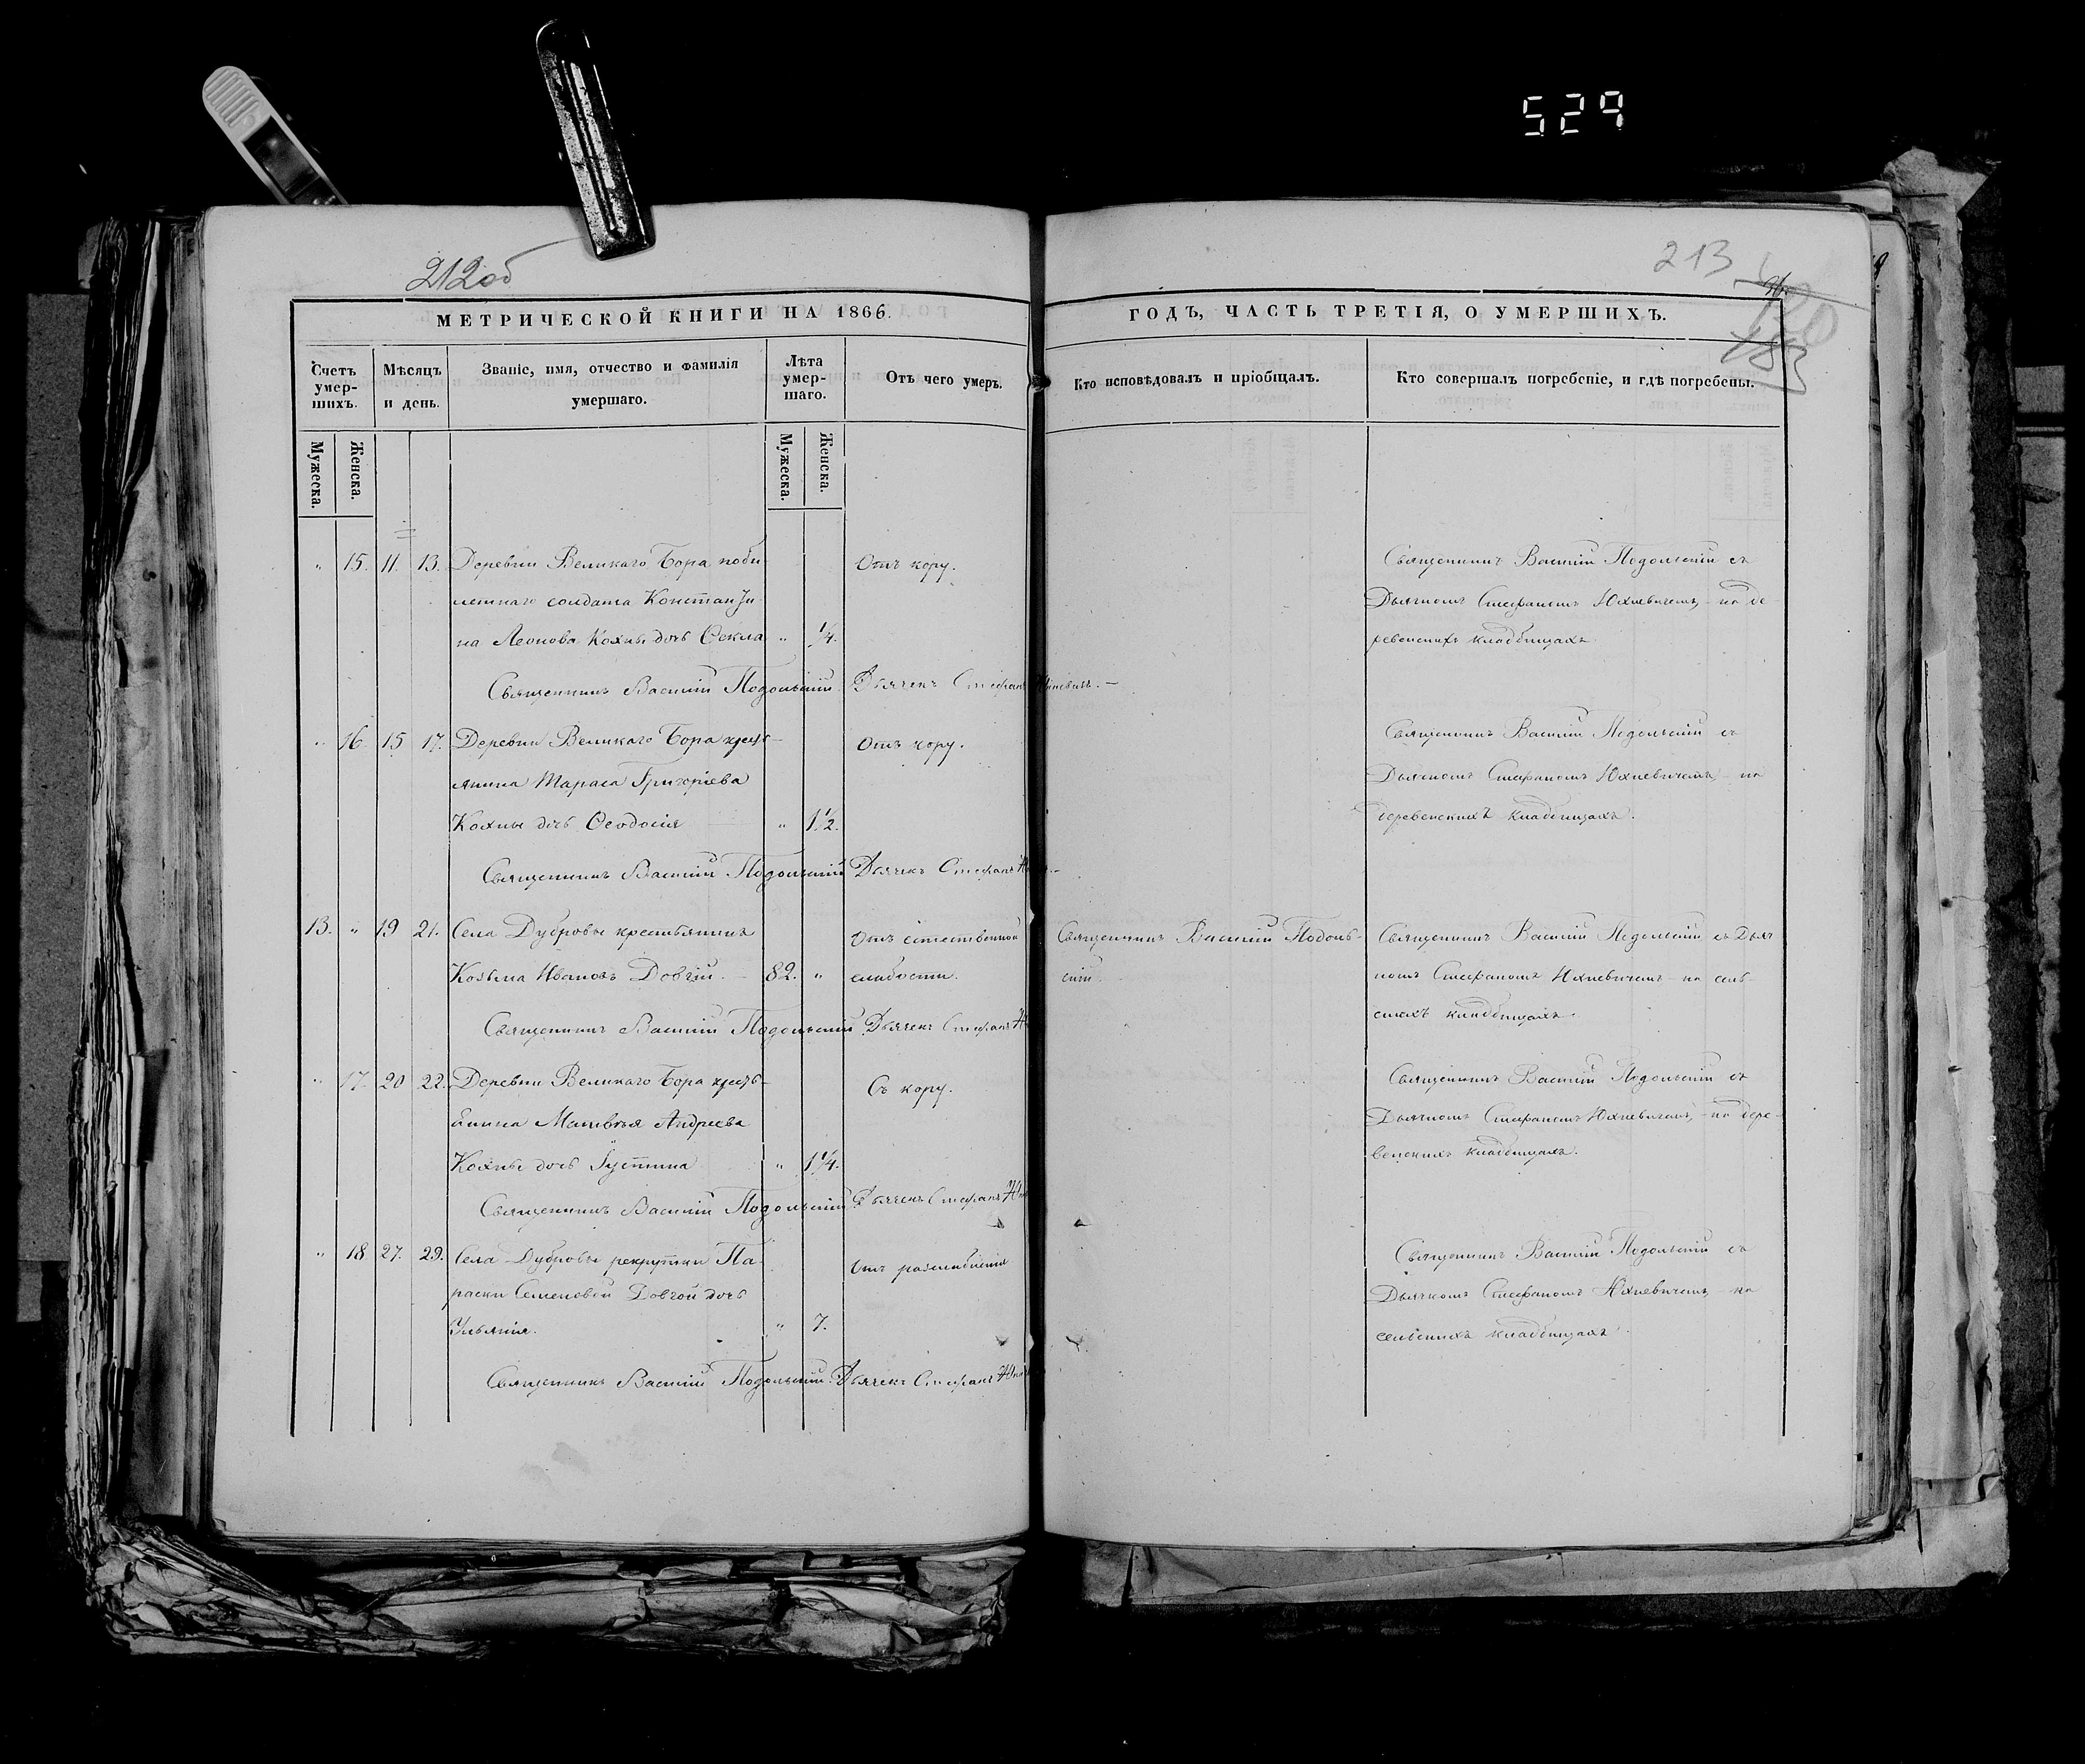 529
212об
213
МЕТРИЧЕСКОЙ КНИГИ НА 1866.
ГОДЪ, ЧАСТЬ ТРЕТІЯ, О УМЕРШИХЪ.
183
Счетъ умер-шихъ.
Мѣсяцъ и день.
Званіе, имя, отчество и фамилія умершаго.
Лѣта умер-шаго.
Отъ чего умеръ.
Кто исповѣдовалъ и пріобщалъ.
Кто совершалъ погребеніе, и гдѣ погребены.
Мужеска. Женска.
Мужеска. Женска.
" 15. 11. 13. Деревни Великаго Бора поби Отъ кору. Священникъ Василій Подольскій съ
летнаго солдата Константи Дьячкомъ Стефаномъ Юхневичемъ, на де
на Леонова Кохны дочь Оекла " 1/4. ревенскихъ кладбищахъ
Священникъ Василій Подольскій Дьячекъ Стефанъ Юхневичъ. —
" 16. 15 17. Деревни Великаго Бора кресть- Отъ кору. Священникъ Василій Подольскій съ
янина Тараса Григоріева Дьячкомъ Стефаномъ Юхневичемъ – на
Кохны дочь Ѳеодосія " 1 1/2. деревенскихъ кладбищахъ.
Священникъ Василій Подольскій Дьячекъ Стефанъ
13. " 19 21. Села Дубровы крестьянинъ Отъ естественной Священникъ Василій Подоль- Священникъ Василій Подольскій съ Дьяч
Козьма Ивановъ Довгій. – 82. " слабости. скій. комъ Стефаномъ Юхневичемъ – на сель-
скихъ кладбищахъ.
Священникъ Василій Подольскій Дьячекъ Стефанъ
" 17. 20 22. Деревни Великаго Бора кресть- Съ кору. Священникъ Василій Подольскій съ
янина Матвѣя Андреева Дьячкомъ Стефаномъ Юхневичемъ, – на дере-
Кохны дочь Густина " 1 1/4. венскихъ кладбищахъ.
Священникъ Василій Подольскій Дьячекъ Стефанъ
" 18 27. 29. Села Дубровы рекрутки Па- Отъ разслабленія Священникъ Василій Подольскій съ
раски Семеновой Довгой дочь Дьячкомъ Стефаномъ Юхневичемъ – на
Ульянія. " 7. сельскихъ кладбищахъ.
Священникъ Василій Подольскій. Дьячекъ Стефанъ